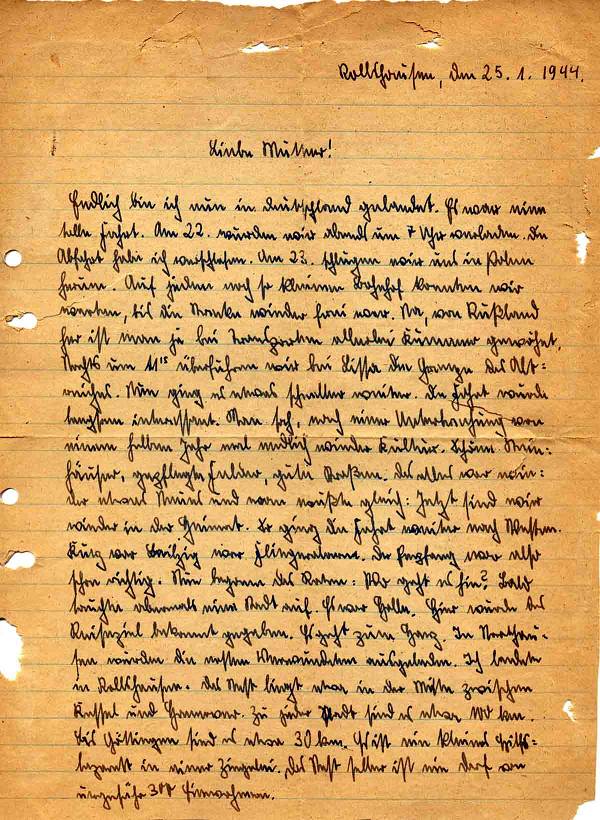 Rollshausen, den 25. 1. 1944.
Liebe Mutter!
Endlich bin ich nun in Deutschland gelandet. Es war eine
tolle Fahrt. Am 22. wurden wir abends um 7 Uhr verladen. Die
Abfahrt habe ich verschlafen. Am 23. schlugen wir uns in Polen
herum. Auf jedem noch so kleinen Bahnhof konnten wir
warten, bis die Strecke wieder frei war. Na, von Rußland
her ist man ja bei Transporten allerlei Kummer gewöhnt.
Nachts um 11¹⁵ überfuhren wir bei Lissa die Grenze des Alt-
reiches. Nun ging es etwas schneller weiter. Die Fahrt wurde
langsam interessant. Man sah, nach einer Unterbrechung von
einem halben Jahr mal endlich wieder Kultur. Schöne Stein-
häuser, gepflegte Felder, gute Straßen. Das alles war wie-
der etwas Neues und man wußte gleich: Jetzt sind wir
wieder in der Heimat. So ging die Fahrt weiter nach Westen.
Kurz vor Leipzig war Fliegeralarm. Der Empfang war also
schon richtig. Nun begann das Raten: Wo geht es hin? Bald
tauchte abermals eine Stadt auf. Es war Halle. Hier wurde das
Reiseziel bekannt gegeben. Es geht zum Harz. In Northeu-
sen wurden die ersten Verwundeten ausgeladen. Ich landete
in Rollshausen. Das Nest liegt etwa in der Mitte zwischen
Kassel und Hannover. Zu jeder Stadt sind es etwa 100 km.
Bis Göttingen sind es etwa 30 km. Es ist ein kleines Hilfs-
lazarett in einer Ziegelei. Das Nest selber ist ein Dorf von
ungefähr 300 Einwohnern.